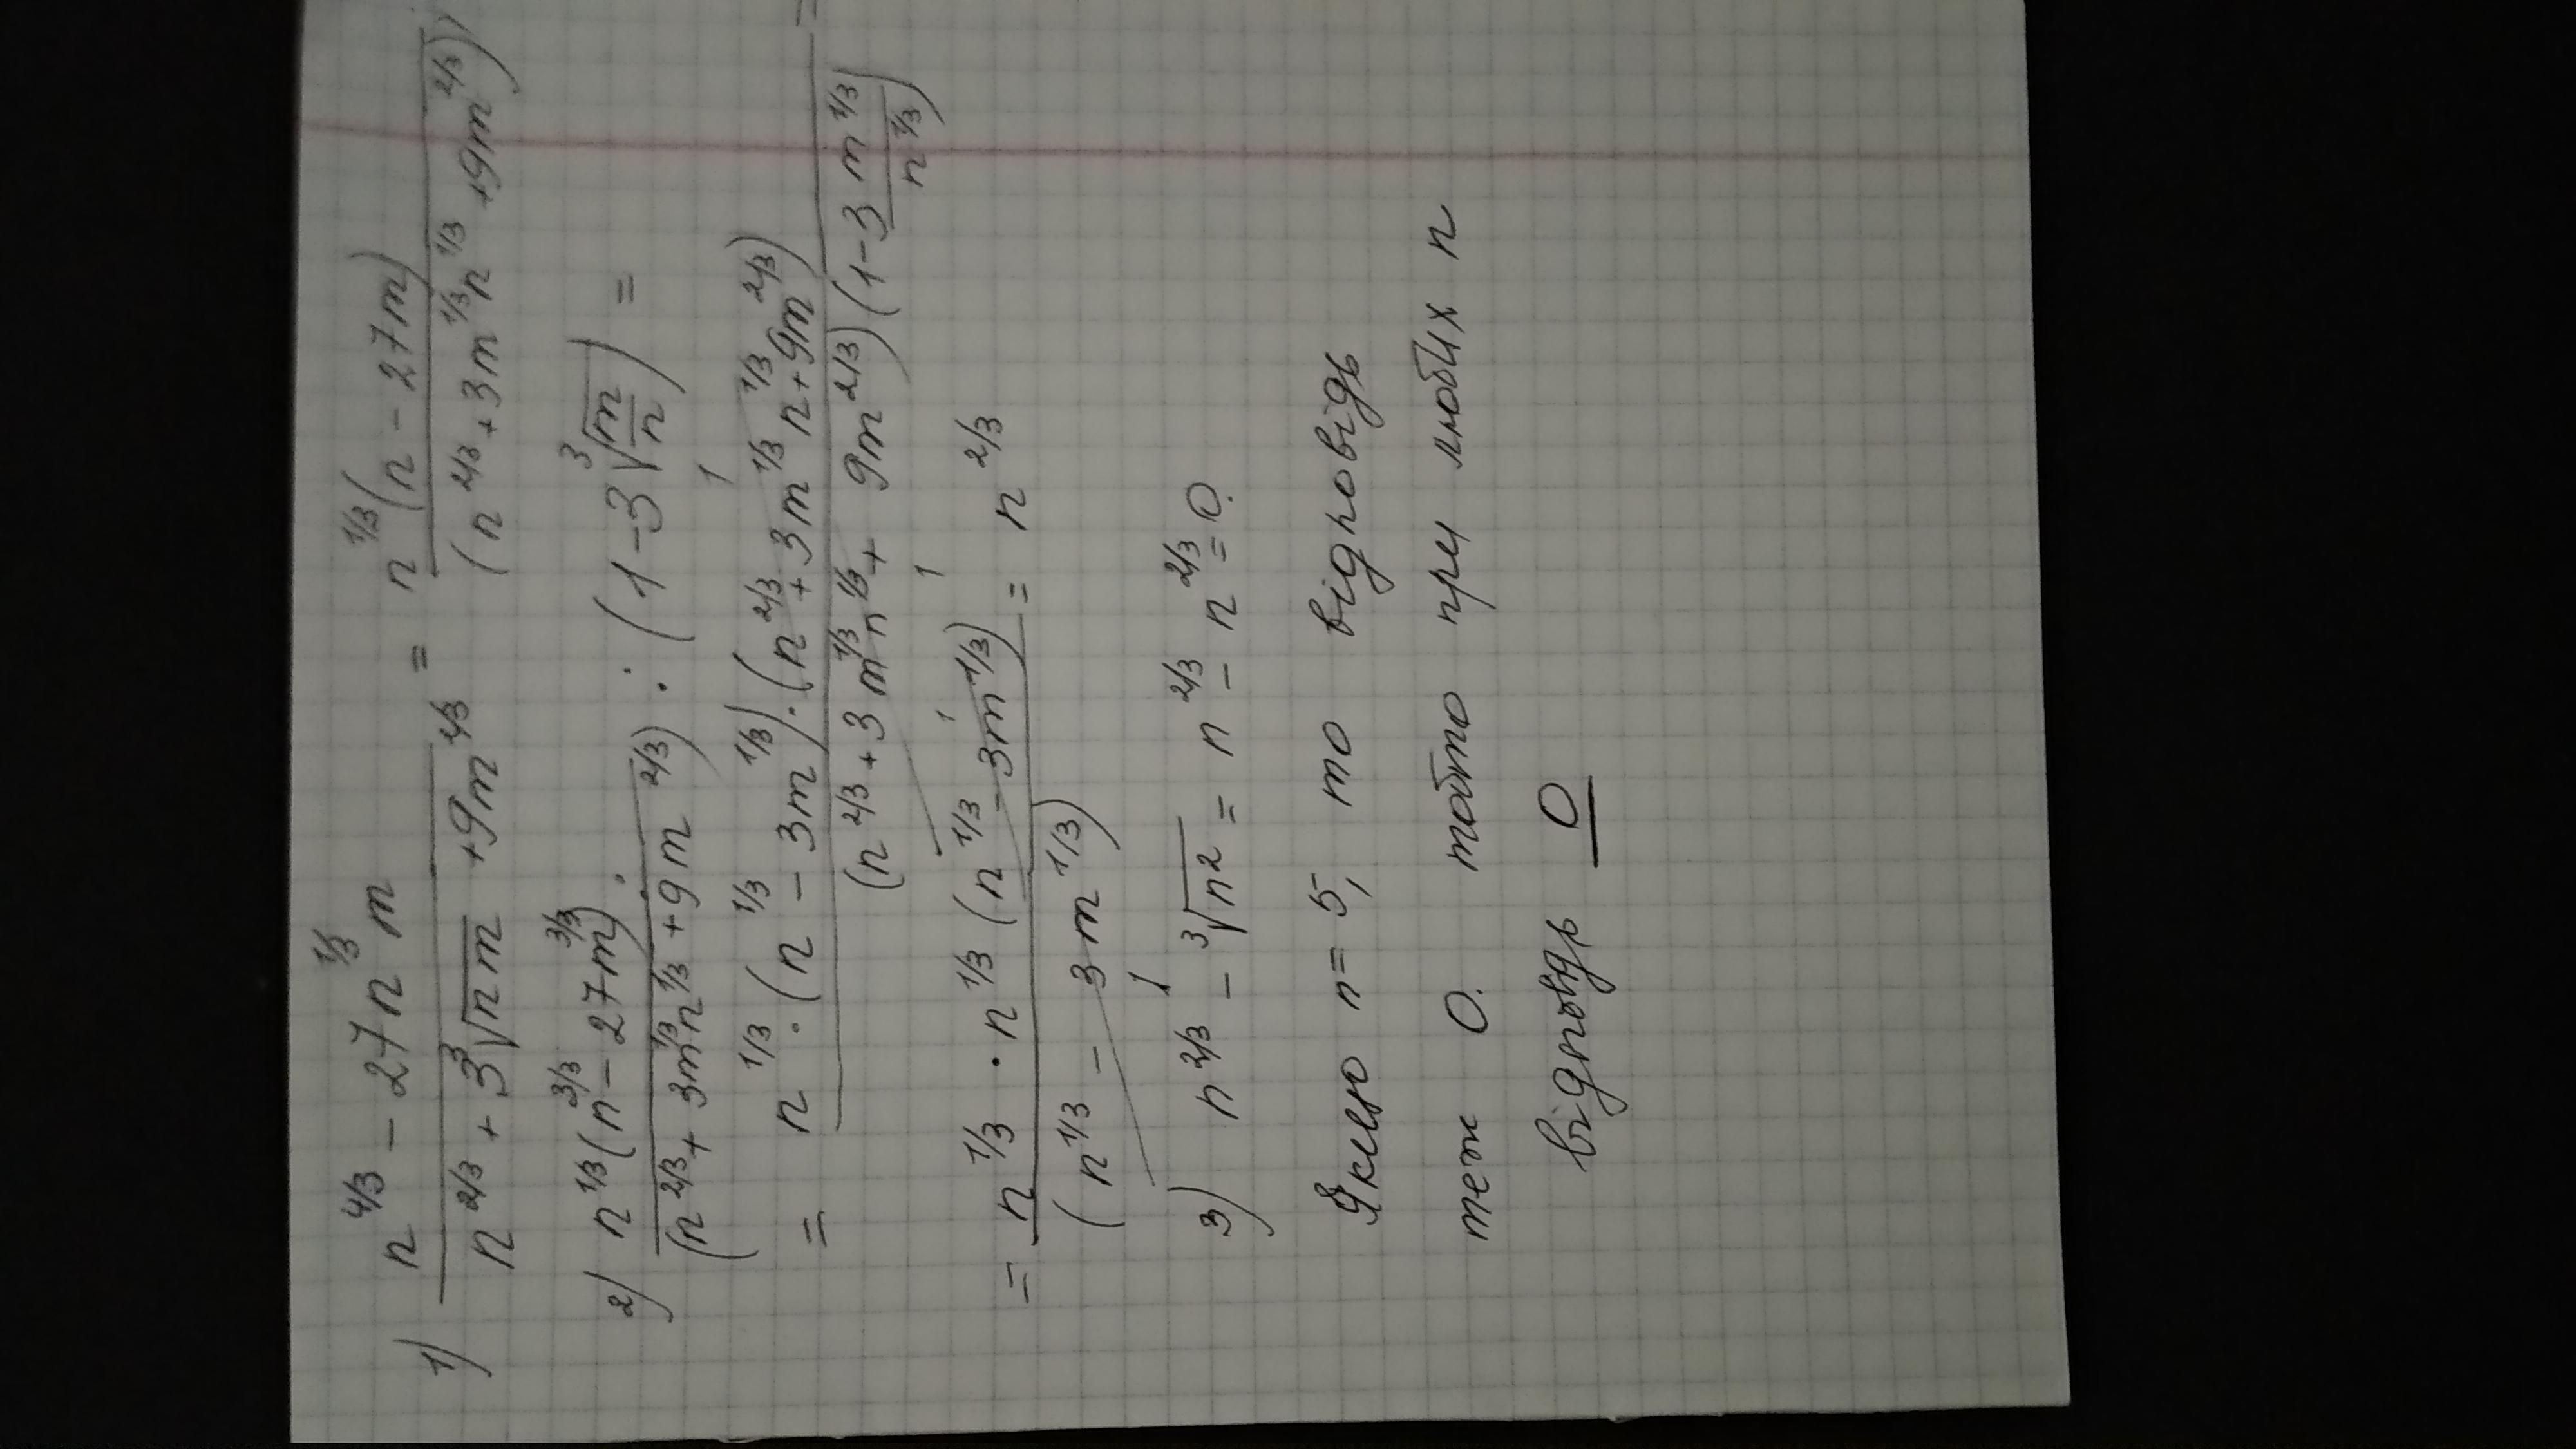 1) n^4/3 - 27n^1/3 m / n^2/3 + 3 ∛nm + 9m^2/3 = n^1/3 (n - 27m) / (n^2/3 + 3m^1/3 n^1/3 + 9m^2/3)
2) n^1/3 (n^3/3 - 27m^3/3) / (n^2/3 + 3m^1/3 n^1/3 + 9m^2/3) : (1 - 3 ∛m/n) =
= n^1/3 · (n^1/3 - 3m^1/3) · (n^2/3 + 3m^1/3 n^1/3 + 9m^2/3) / (n^2/3 + 3m^1/3 n^1/3 + 9m^2/3) (1 - 3 m^1/3 / n^1/3) =
= n^1/3 · n^1/3 (n^1/3 - 3m^1/3) / (n^1/3 - 3m^1/3) = n^2/3
3) n^2/3 - ∛n2 = n^2/3 - n^2/3 = 0.
Якщо n = 5, то відповідь
теж 0. тобто при любих n
відповідь 0